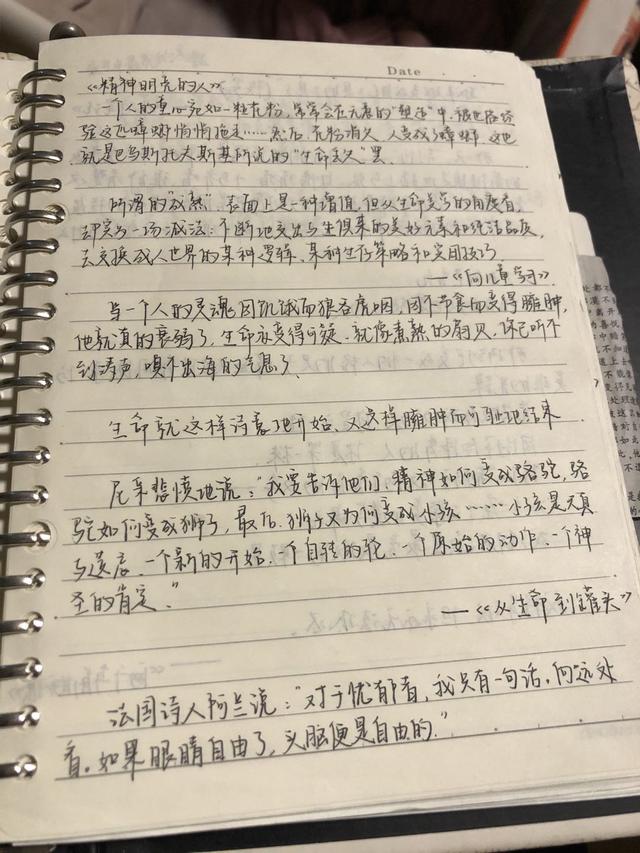 Date
《精神明亮的人》
一个人的童心宛如一粒花粉，常常会在无意的"塑造"中，被世俗经
验这匹蟑螂悄悄拖走……然后，花粉消失，人变成了蟑螂。这也
就是巴乌斯托夫斯基所说的"生命丢失"罢
所谓的"成熟"，表面上是一种增值，但从生命美学的角度看，
却实为一场减法：不断地交出与生俱来的美好元素和纯洁品质，
去交换成人世界的某种逻辑、某种生存策略和实用技巧
——《向儿童学习》
当一个人的灵魂因饥饿而狼吞虎咽，因不节食而变得臃肿，
他就真的衰弱了，生命亦变得可疑、就像煮熟的扇贝，你已听不
到涛声，嗅不出海的气息了
生命就这样诗意地开始、又这样臃肿而可耻地结束
尼采悲愤地说："我要告诉他们，精神如何变成骆驼，骆
驼如何变成狮子，最后，狮子又为何变成小孩……小孩是天真
与遗忘，一个新的开始、一个自转的轮、一个原始的动作、一个神
圣的肯定。"
——《从生命到罐头》
法国诗人阿兰说："对于忧郁者，我只有一句话，向远处
看。如果眼睛自由了，头脑便是自由的."